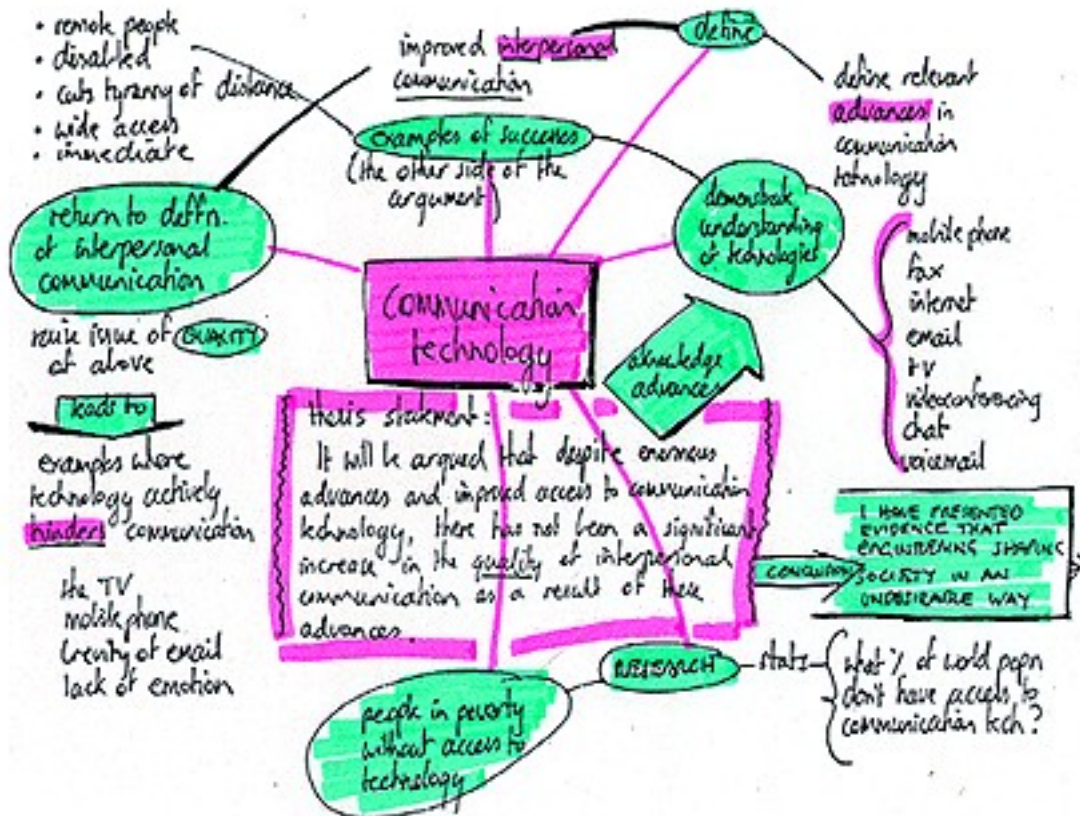 • remote people
• disabled
• cuts tyranny of distance
• wide access
• immediate
improved interpersonal
communication
define
define relevant
advances in
communication
technology
examples of successes
(the other side of the
argument)
demonstrate
understanding
of technologies
mobile phone
fax
internet
email
TV
videoconferencing
chat
voicemail
return to deffn.
of interpersonal
communication
issue of QUALITY
at above
leads to
examples where
technology actively
hinders communication
the TV
mobile phone
brevity of email
lack of emotion
communication
technology
aknowledge
advances
thesis statement:
It will be argued that despite enormous
advances and improved access to communication
technology, there has not been a significant
increase in the quality of interpersonal
communication as a result of these
advances.
CONCLUSION
I HAVE PRESENTED
EVIDENCE THAT
ENGINEERING SHAPING
SOCIETY IN AN
UNDESIRABLE WAY
people in poverty
without access to
technology
RESEARCH
stats
what % of world popn
don't have access to
communication tech?